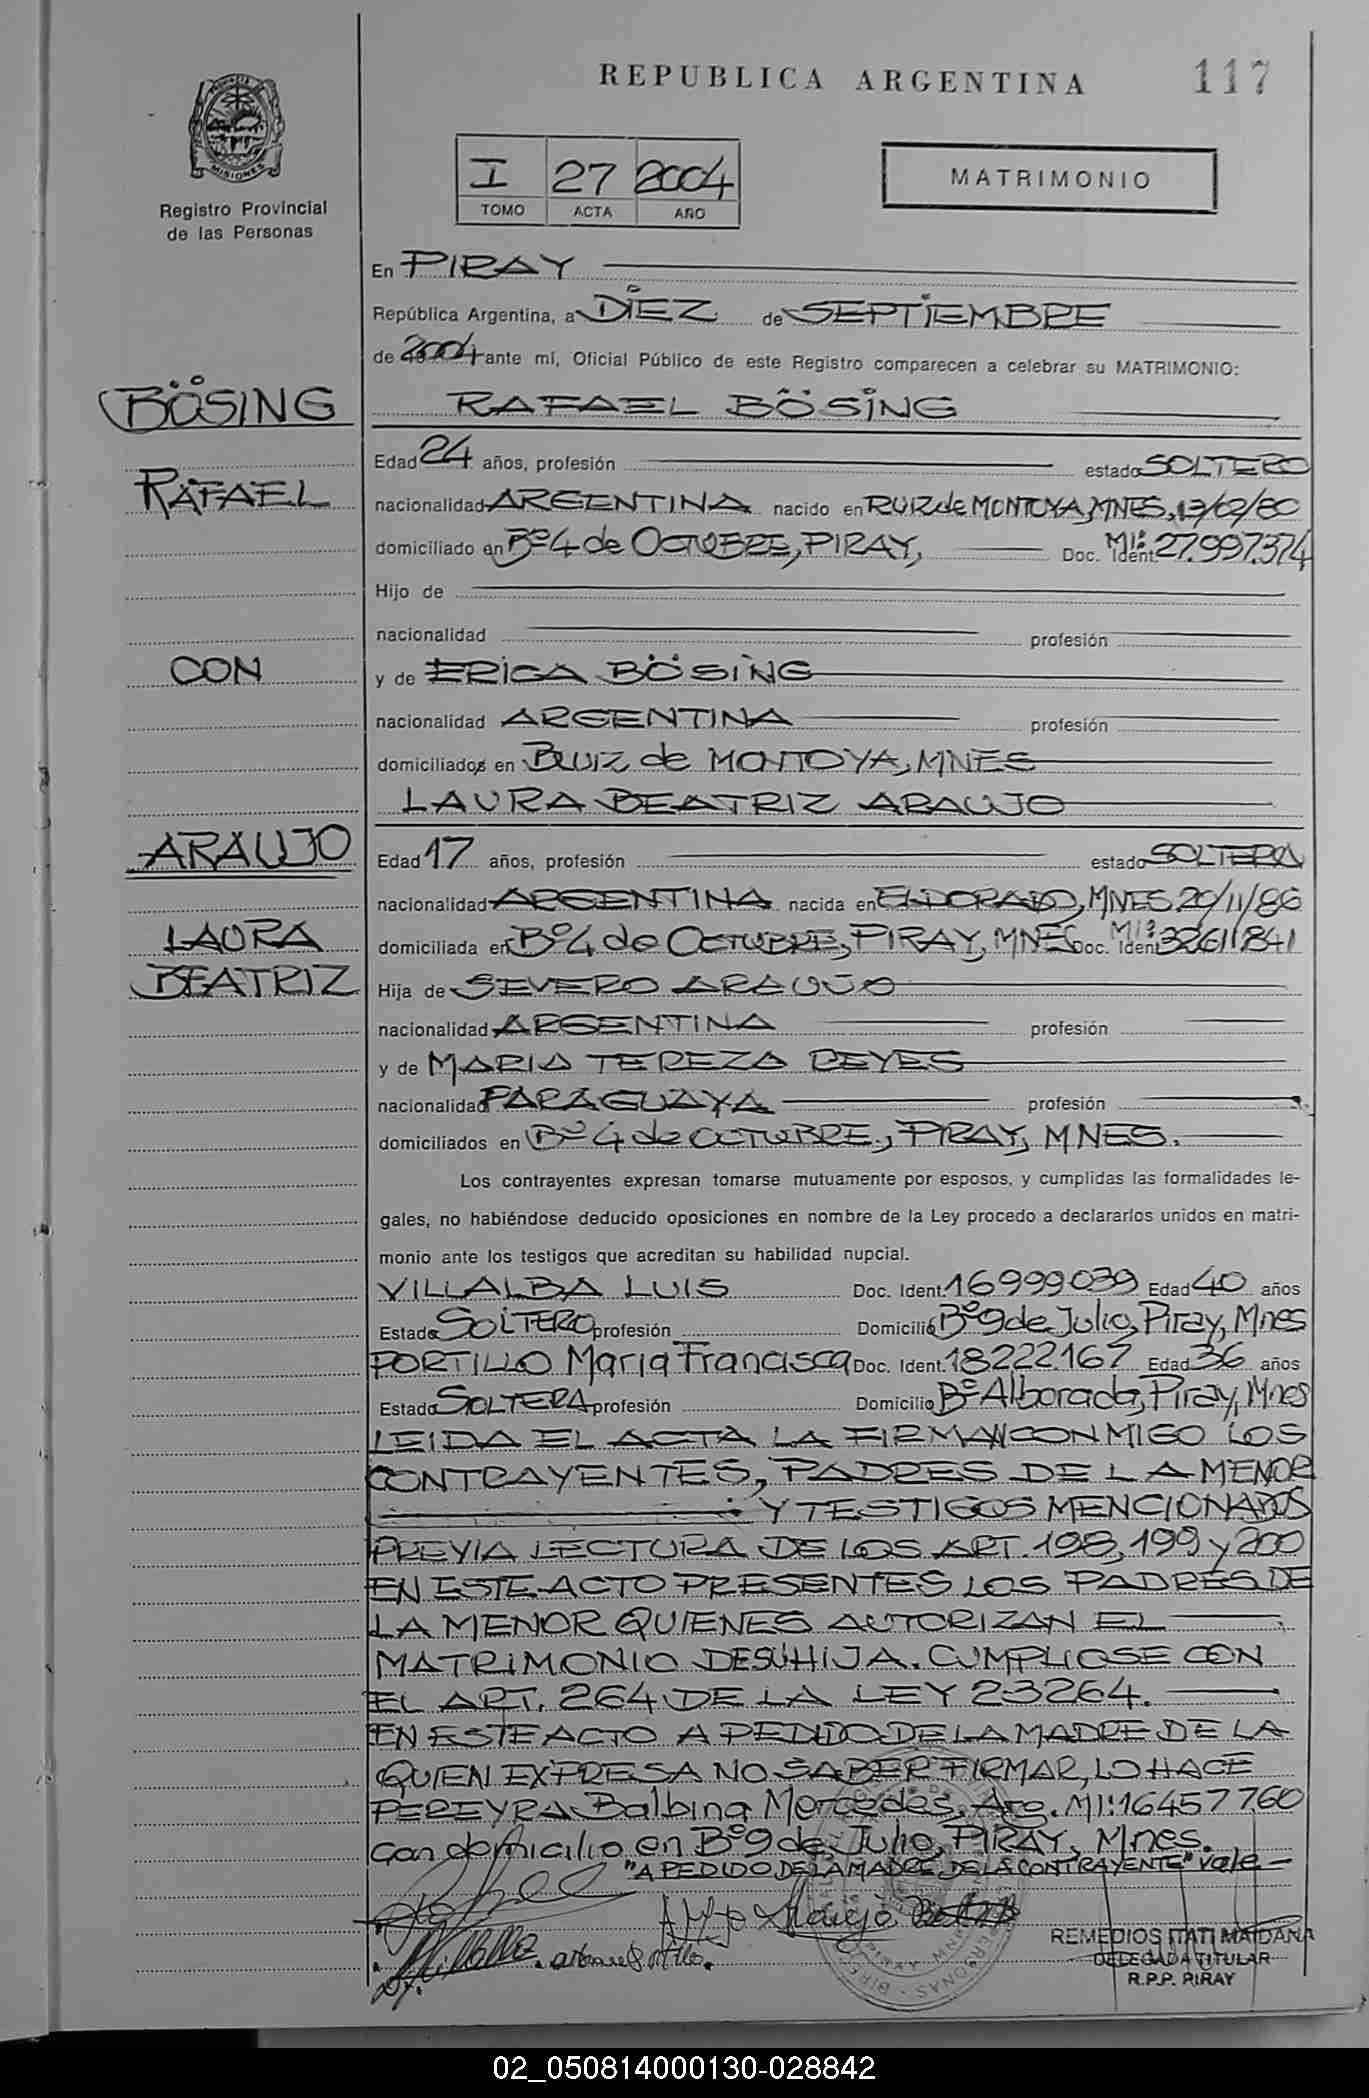 REPUBLICA ARGENTINA
117
MISIONES
Registro Provincial
de las Personas
I 27 2004
TOMO ACTA AÑO
MATRIMONIO
En PIRAY
República Argentina, a DIEZ de SEPTIEMBRE
de 2004 ante mí, Oficial Público de este Registro comparecen a celebrar su MATRIMONIO:
BÖSING
RAFAEL BÖSING
Edad 24 años, profesión estado SOLTERO
RAFAEL
nacionalidad ARGENTINA nacido en RUIZ de MONTOYA, MNES, 13/02/80
domiciliado en Bº 4 de OCTUBRE, PIRAY, Doc. Ident. MI: 27.997.374
Hijo de
nacionalidad profesión
CON
y de ERICA BÖSING
nacionalidad ARGENTINA profesión
domiciliados en RUIZ de MONTOYA, MNES
LAURA BEATRIZ ARAUJO
ARAUJO
Edad 17 años, profesión estado SOLTERA
nacionalidad ARGENTINA nacida en ELDORADO, MNES 20/11/86
LAURA
domiciliada en Bº 4 de OCTUBRE, PIRAY, MNES Doc. Ident. MI: 32611841
BEATRIZ
Hija de SEVERO ARAUJO
nacionalidad ARGENTINA profesión
y de MARIA TEREZA REYES
nacionalidad PARAGUAYA profesión
domiciliados en Bº 4 de OCTUBRE, PIRAY, MNES.
Los contrayentes expresan tomarse mutuamente por esposos, y cumplidas las formalidades le-
gales, no habiéndose deducido oposiciones en nombre de la Ley procedo a declararlos unidos en matri-
monio ante los testigos que acreditan su habilidad nupcial.
VILLALBA LUIS Doc. Ident. 16999039 Edad 40 años
Estado SOLTERO profesión Domicilio Bº 9 de Julio, Piray, Mnes
PORTILLO Maria Francisca Doc. Ident. 18222.167 Edad 36 años
Estado SOLTERA profesión Domicilio Bº Alborada, Piray, Mnes
LEIDA EL ACTA LA FIRMAN CONMIGO LOS
CONTRAYENTES, PADRES DE LA MENOR
Y TESTIGOS MENCIONADOS
PREVIA LECTURA DE LOS ART. 198, 199 y 200
EN ESTE ACTO PRESENTES LOS PADRES DE
LA MENOR QUIENES AUTORIZAN EL
MATRIMONIO DE SU HIJA. CUMPLIOSE CON
EL ART. 264 DE LA LEY 23264.
EN ESTE ACTO A PEDIDO DE LA MADRE DE LA
QUIEN EXPRESA NO SABER FIRMAR, LO HACE
PEREYRA Balbina Mercedes, Arg. MI: 16457760
con domicilio en Bº 9 de Julio, PIRAY, Mnes.
"A PEDIDO DE LA MADRE DE LA CONTRAYENTE" Vale
Araujo
REMEDIOS ITATI MAIDANA
DELEGADA TITULAR
R.P.P. PIRAY
02_050814000130-028842